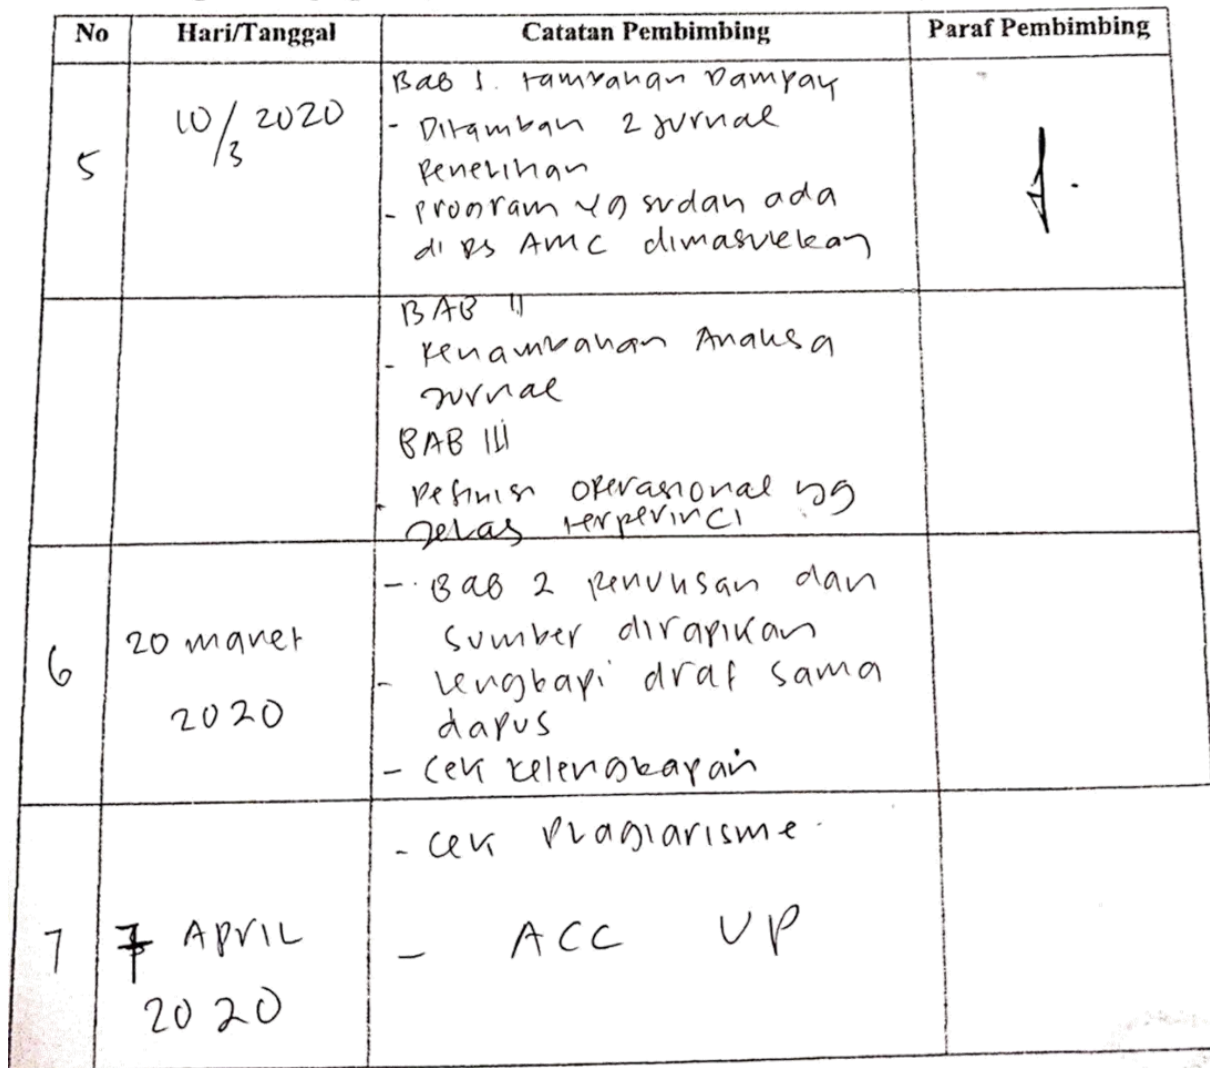 No Hari/Tanggal Catatan Pembimbing Paraf Pembimbing
5 10/3 2020
Bab 1. tambahan Dampak
- Ditambah 2 jurnal
Penelitian
- program yg sudah ada
di RS AMC dimasukkan
BAB II
- Penambahan Analisa
jurnal
BAB III
- Definisi operasional yg
jelas terperinci
6 20 maret
2020
- Bab 2 penulisan dan
sumber dirapikan
- lengkapi draf sama
dapus
- Cek kelengkapan
7 7 APRIL
2020
- Cek Plagiarisme.
- ACC UP